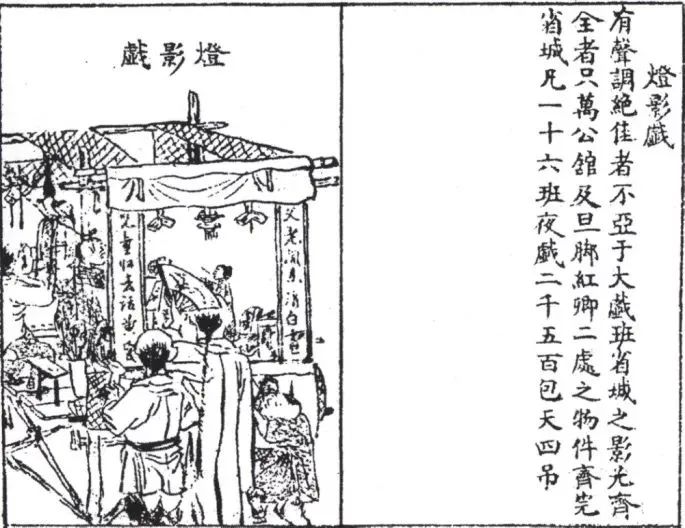 燈影戲
有聲調絕佳者不亞于大戲班省城之影光齊
全者只萬公舘及旦脚紅卿二處之物件齊完
省城凡一十六班夜戲二千五百包天四吊
燈影戲
父老閒來消白
童归去話